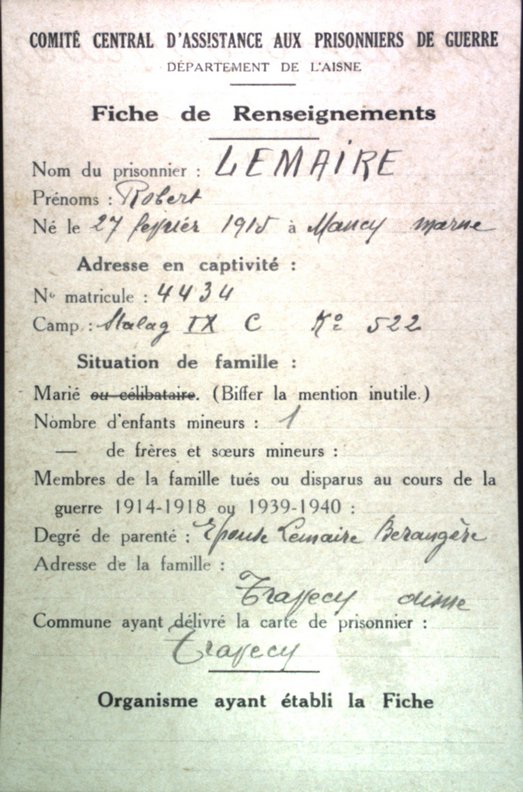 COMITÉ CENTRAL D'ASSISTANCE AUX PRISONNIERS DE GUERRE
DÉPARTEMENT DE L'AISNE
Fiche de Renseignements
Nom du prisonnier : LEMAIRE
Prénoms : Robert
Né le 27 février 1915 à Mancy marne
Adresse en captivité :
N° matricule : 4434
Camp : Stalag IX C K° 522
Situation de famille :
Marié ou célibataire. (Biffer la mention inutile.)
Nombre d'enfants mineurs : 1
— de frères et sœurs mineurs :
Membres de la famille tués ou disparus au cours de la
guerre 1914-1918 ou 1939-1940 :
Degré de parenté : Epouse Lemaire Berangère
Adresse de la famille :
Travecy aisne
Commune ayant délivré la carte de prisonnier :
Travecy
Organisme ayant établi la Fiche